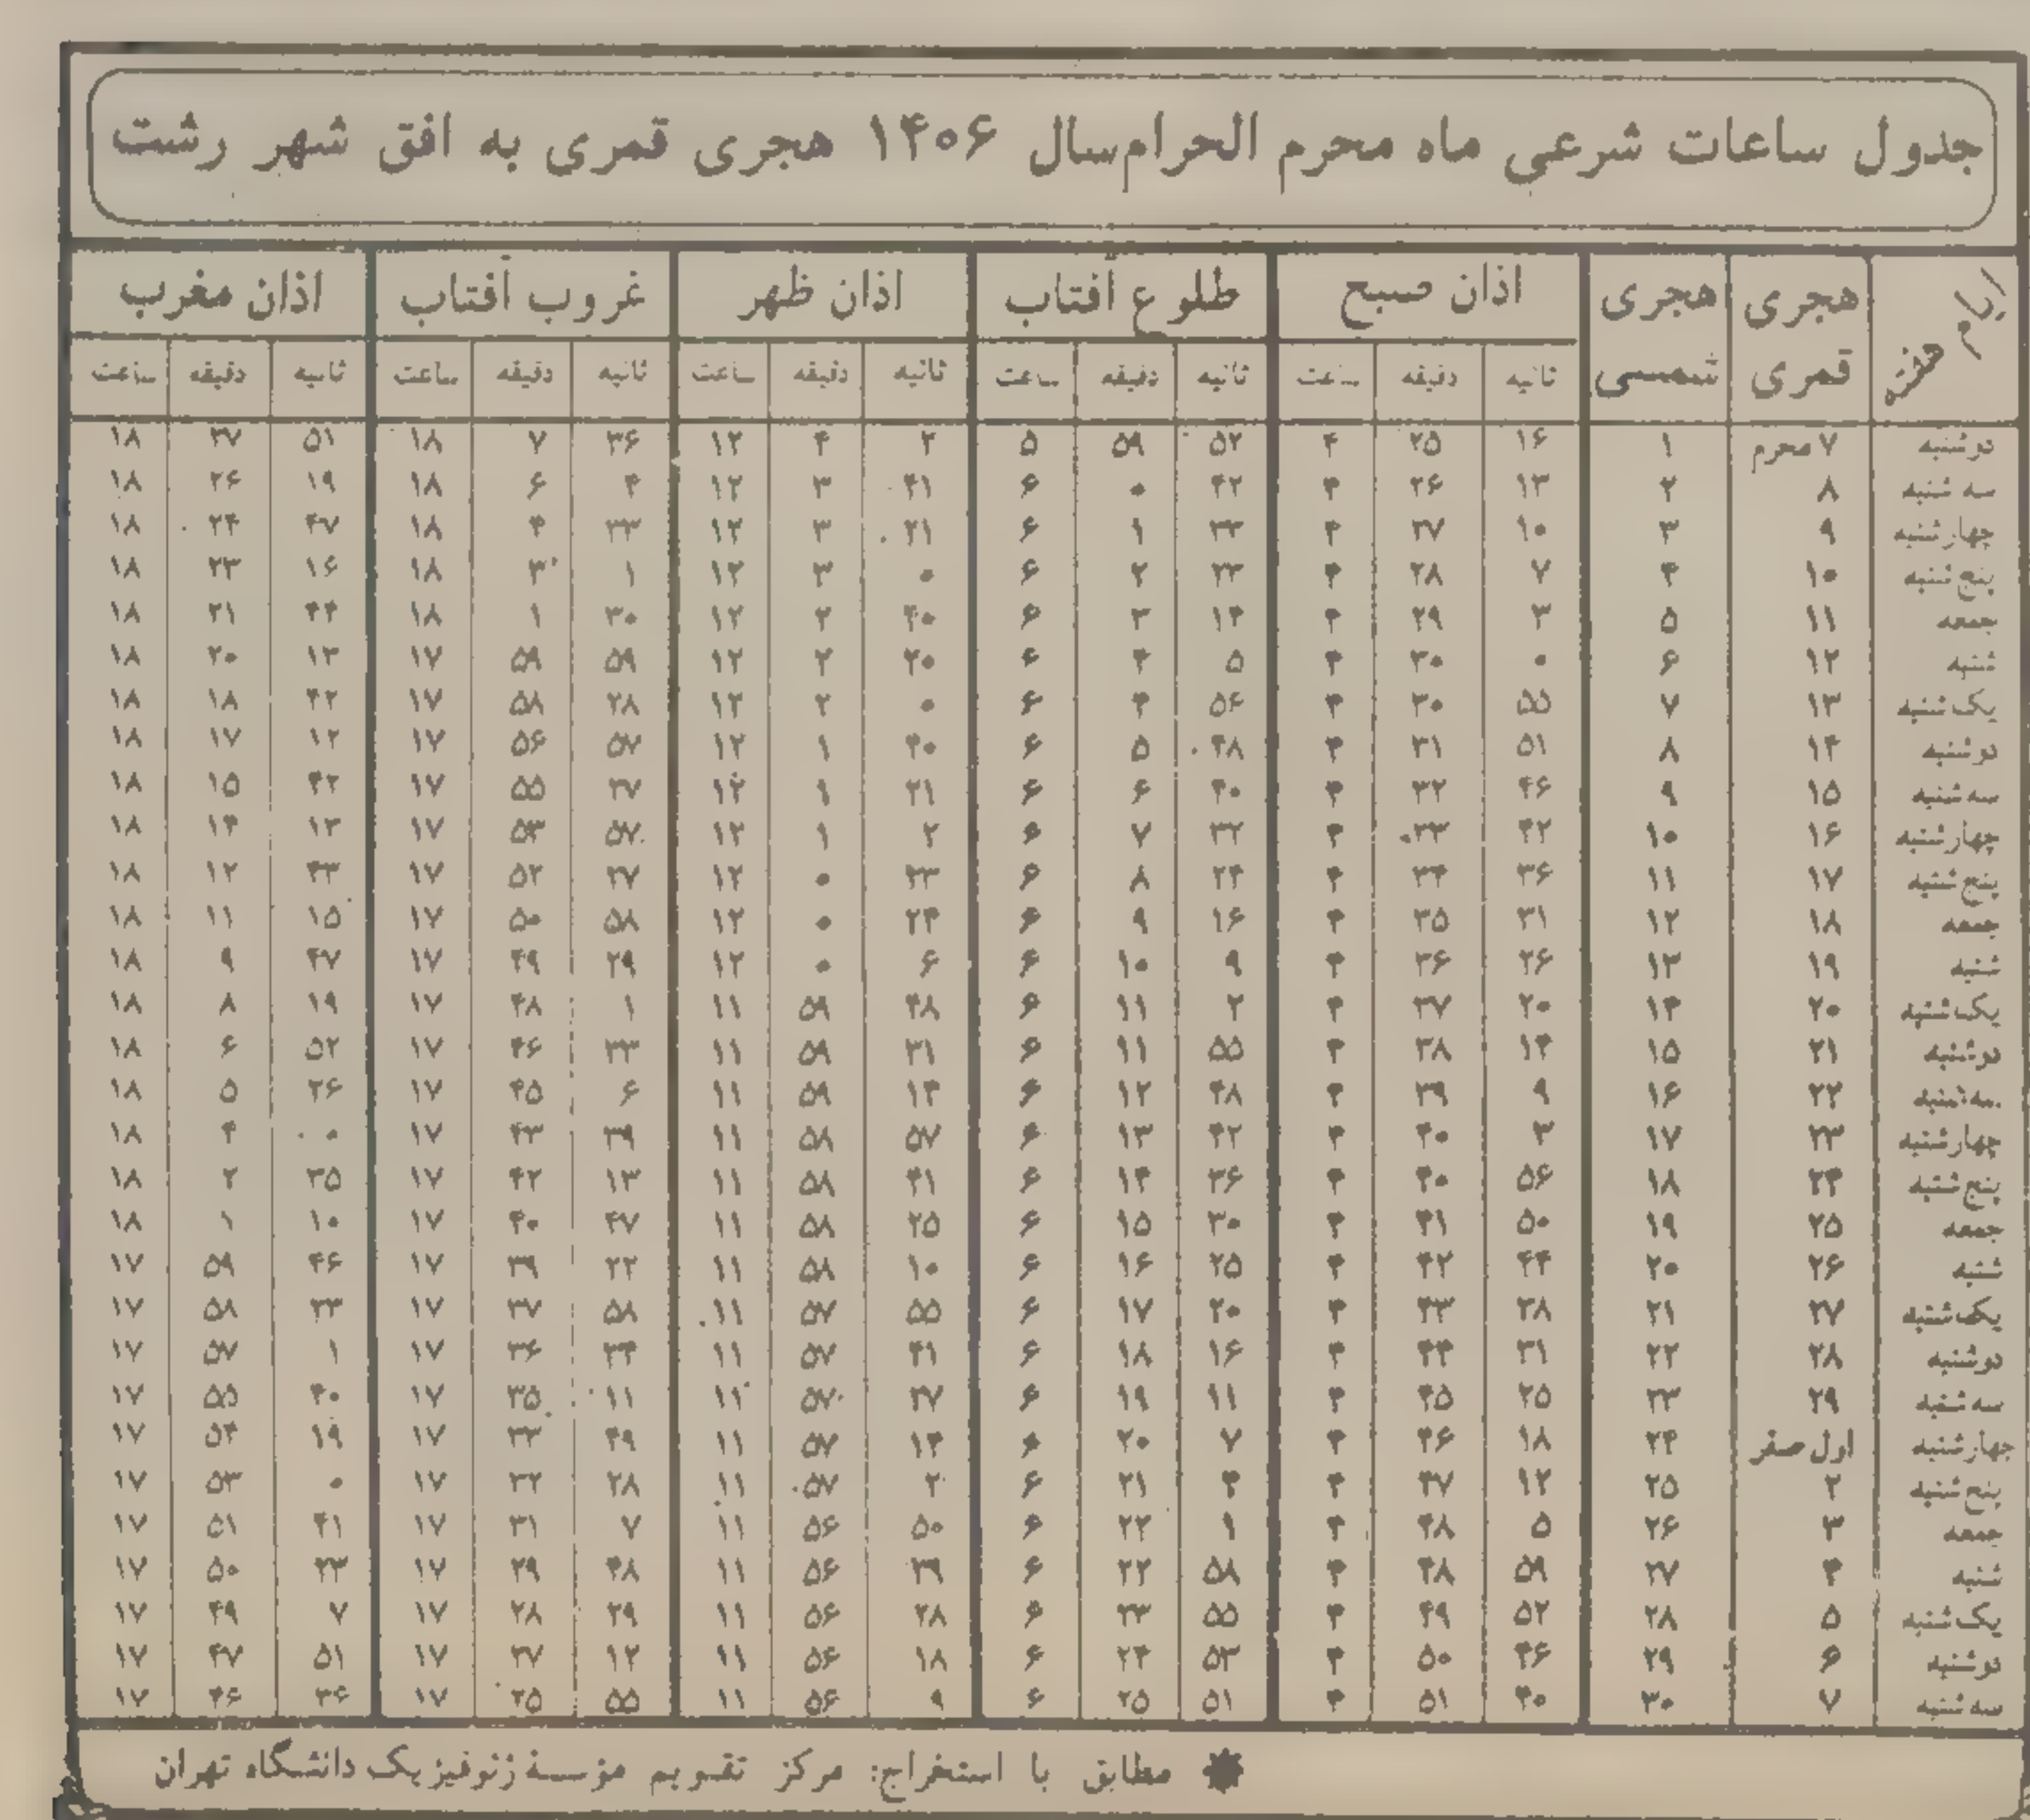 جدول ساعات شرعی ماه محرم الحرام سال ۱۴۰۶ هجری قمری به افق شهر رشت
ایام هفته هجری قمری هجری شمسی اذان صبح طلوع آفتاب اذان ظهر غروب آفتاب اذان مغرب
ثانیه دقیقه ساعت ثانیه دقیقه ساعت ثانیه دقیقه ساعت ثانیه دقیقه ساعت ثانیه دقیقه ساعت
دوشنبه ۷ محرم ۱ ۱۶ ۲۵ ۴ ۵۲ ۵۹ ۵ ۲ ۴ ۱۲ ۳۶ ۷ ۱۸ ۵۱ ۲۷ ۱۸
سه شنبه ۸ ۲ ۱۳ ۲۶ ۴ ۴۲ ۰ ۶ ۴۱ ۳ ۱۲ ۴ ۶ ۱۸ ۱۹ ۲۶ ۱۸
چهارشنبه ۹ ۳ ۱۰ ۲۷ ۴ ۳۳ ۱ ۶ ۲۱ ۳ ۱۲ ۳۳ ۴ ۱۸ ۴۷ ۲۴ ۱۸
پنج شنبه ۱۰ ۴ ۷ ۲۸ ۴ ۲۳ ۲ ۶ ۰ ۳ ۱۲ ۱ ۳ ۱۸ ۱۶ ۲۳ ۱۸
جمعه ۱۱ ۵ ۳ ۲۹ ۴ ۱۴ ۳ ۶ ۴۰ ۲ ۱۲ ۳۰ ۱ ۱۸ ۴۴ ۲۱ ۱۸
شنبه ۱۲ ۶ ۰ ۳۰ ۴ ۵ ۴ ۶ ۲۰ ۲ ۱۲ ۵۹ ۵۹ ۱۷ ۱۳ ۲۰ ۱۸
یک شنبه ۱۳ ۷ ۵۵ ۳۰ ۴ ۵۶ ۴ ۶ ۰ ۲ ۱۲ ۲۸ ۵۸ ۱۷ ۴۲ ۱۸ ۱۸
دوشنبه ۱۴ ۸ ۵۱ ۳۱ ۴ ۴۸ ۵ ۶ ۴۰ ۱ ۱۲ ۵۷ ۵۶ ۱۷ ۱۲ ۱۷ ۱۸
سه شنبه ۱۵ ۹ ۴۶ ۳۲ ۴ ۴۰ ۶ ۶ ۲۱ ۱ ۱۲ ۲۷ ۵۵ ۱۷ ۴۲ ۱۵ ۱۸
چهارشنبه ۱۶ ۱۰ ۴۲ ۳۳ ۴ ۳۲ ۷ ۶ ۲ ۱ ۱۲ ۵۷ ۵۳ ۱۷ ۱۳ ۱۴ ۱۸
پنج شنبه ۱۷ ۱۱ ۳۶ ۳۴ ۴ ۲۴ ۸ ۶ ۴۳ ۰ ۱۲ ۲۷ ۵۲ ۱۷ ۴۳ ۱۲ ۱۸
جمعه ۱۸ ۱۲ ۳۱ ۳۵ ۴ ۱۶ ۹ ۶ ۲۴ ۰ ۱۲ ۵۸ ۵۰ ۱۷ ۱۵ ۱۱ ۱۸
شنبه ۱۹ ۱۳ ۲۶ ۳۶ ۴ ۹ ۱۰ ۶ ۶ ۰ ۱۲ ۲۹ ۴۹ ۱۷ ۴۷ ۹ ۱۸
یک شنبه ۲۰ ۱۴ ۲۰ ۳۷ ۴ ۲ ۱۱ ۶ ۴۸ ۵۹ ۱۱ ۱ ۴۸ ۱۷ ۱۹ ۸ ۱۸
دوشنبه ۲۱ ۱۵ ۱۴ ۳۸ ۴ ۵۵ ۱۱ ۶ ۳۱ ۵۹ ۱۱ ۳۳ ۴۶ ۱۷ ۵۲ ۶ ۱۸
سه شنبه ۲۲ ۱۶ ۹ ۳۹ ۴ ۴۸ ۱۲ ۶ ۱۴ ۵۹ ۱۱ ۶ ۴۵ ۱۷ ۲۶ ۵ ۱۸
چهارشنبه ۲۳ ۱۷ ۳ ۴۰ ۴ ۴۲ ۱۳ ۶ ۵۷ ۵۸ ۱۱ ۳۹ ۴۳ ۱۷ ۰ ۴ ۱۸
پنج شنبه ۲۴ ۱۸ ۵۶ ۴۰ ۴ ۳۶ ۱۴ ۶ ۴۱ ۵۸ ۱۱ ۱۳ ۴۲ ۱۷ ۳۵ ۲ ۱۸
جمعه ۲۵ ۱۹ ۵۰ ۴۱ ۴ ۳۰ ۱۵ ۶ ۲۵ ۵۸ ۱۱ ۴۷ ۴۰ ۱۷ ۱۰ ۱ ۱۸
شنبه ۲۶ ۲۰ ۴۴ ۴۲ ۴ ۲۵ ۱۶ ۶ ۱۰ ۵۸ ۱۱ ۲۲ ۳۹ ۱۷ ۴۶ ۵۹ ۱۷
یک شنبه ۲۷ ۲۱ ۳۸ ۴۳ ۴ ۲۰ ۱۷ ۶ ۵۵ ۵۷ ۱۱ ۵۸ ۳۷ ۱۷ ۲۳ ۵۸ ۱۷
دوشنبه ۲۸ ۲۲ ۳۱ ۴۴ ۴ ۱۶ ۱۸ ۶ ۴۱ ۵۷ ۱۱ ۳۴ ۳۶ ۱۷ ۱ ۵۷ ۱۷
سه شنبه ۲۹ ۲۳ ۲۵ ۴۵ ۴ ۱۱ ۱۹ ۶ ۲۷ ۵۷ ۱۱ ۱۱ ۳۵ ۱۷ ۴۰ ۵۵ ۱۷
چهارشنبه اول صفر ۲۴ ۱۸ ۴۶ ۴ ۷ ۲۰ ۶ ۱۴ ۵۷ ۱۱ ۴۹ ۳۳ ۱۷ ۱۹ ۵۴ ۱۷
پنج شنبه ۲ ۲۵ ۱۲ ۴۷ ۴ ۴ ۲۱ ۶ ۲ ۵۷ ۱۱ ۲۸ ۳۲ ۱۷ ۰ ۵۳ ۱۷
جمعه ۳ ۲۶ ۵ ۴۸ ۴ ۱ ۲۲ ۶ ۵۰ ۵۶ ۱۱ ۷ ۳۱ ۱۷ ۴۱ ۵۱ ۱۷
شنبه ۴ ۲۷ ۵۹ ۴۸ ۴ ۵۸ ۲۲ ۶ ۳۹ ۵۶ ۱۱ ۴۸ ۲۹ ۱۷ ۲۳ ۵۰ ۱۷
یک شنبه ۵ ۲۸ ۵۲ ۴۹ ۴ ۵۵ ۲۳ ۶ ۲۸ ۵۶ ۱۱ ۲۹ ۲۸ ۱۷ ۷ ۴۹ ۱۷
دوشنبه ۶ ۲۹ ۴۶ ۵۰ ۴ ۵۳ ۲۴ ۶ ۱۸ ۵۶ ۱۱ ۱۲ ۲۷ ۱۷ ۵۱ ۴۷ ۱۷
سه شنبه ۷ ۳۰ ۴۰ ۵۱ ۴ ۵۱ ۲۵ ۶ ۹ ۵۶ ۱۱ ۵۵ ۲۵ ۱۷ ۳۶ ۴۶ ۱۷
مطابق با استخراج: مرکز تقویم مؤسسهٔ ژئوفیزیک دانشگاه تهران